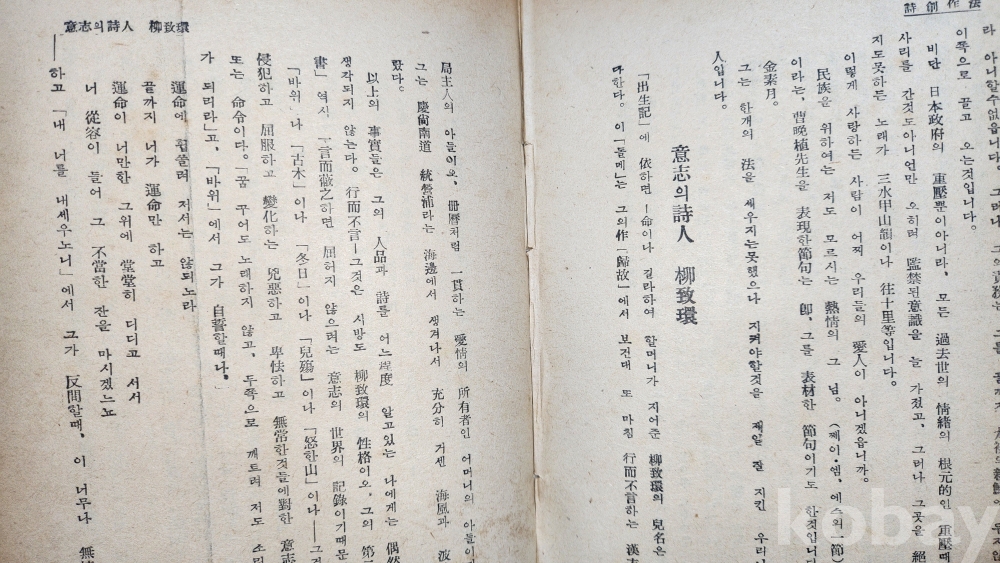 詩創作法
이쪽으로 끌고 오는것입니다.
비단 日本政府의 重壓뿐이아니라, 모든 過去世의 情緖의 根元的인 重壓때
사리를 간것도아니언만 오히려 監禁된意識을 늘 가졌고, 그러나 그곳을 絕
지도못하는 노래가 三水甲山韻이나 往十里等입니다.
이렇게 사랑하는 사람이 어찌 우리들의 愛人이 아니겠읍니까.
民族을 위하여는 저도 모르시는 熱情의 그 님. (쩨이·엠, 에스의 節)
이라는, 曹晩植先生을 表現한節句는 卽, 그를 表材한 節句이기도 한것입니다
金素月.
그는 한개의 法을 세우지는못했으나 지켜야할것을 제일 잘 지킨 우리
人입니다.
意志의詩人 柳致環
「出生記」에 依하면 ―命이나 길라하여 할머니가 지어준 柳致環의 兒名은
다한다. 이「돌메」는 그의作「歸故」에서 보건대 도 마침 行而不言하는 漢
意志의詩人 柳致環
局主人의 아들이오, 冊曆처럼 一貫하는 愛情의 所有者인 어머니의 아들이
그는 慶尙南道 統營浦라는 海邊에서 생겨나서 充分히 거센 海風과 波
랐다.
以上의 事實들은 그의 人品과 詩를 어느程度 알고있는 나에게는 偶然
생각되지 않는다. 行而不言―그것은 시방도 柳致環의 性格이오, 그의 第
書」 역시 一言而蔽之하면 屈하지 않으려는 意志의 世界의 記錄이기때문
「바위」나 「古木」이나 「冬日」이나 「兒殤」이나 「怒한山」이나――그
侵犯하고 屈服하고 變化하는 兇惡하고 卑怯하고 無常한것들에對한 意志
또는 命令이다. 「꿈 꾸어도 노래하지 않고, 두쪽으로 깨트려 저도 소리
가 되리라」고, 「바위」에서 그가 自誓할때나.
運命에 휩쓸려 저서는 않되노라
끝까지 너가 運命만 하고
運命이 너만한 그위에 堂堂히 디디고 서서
너 從容이 들어 그 不當한 잔을 마시겠느뇨
――하고 「내 너를 내세우노니」에서 그가 反問할때, 이 너무나 無
kobay